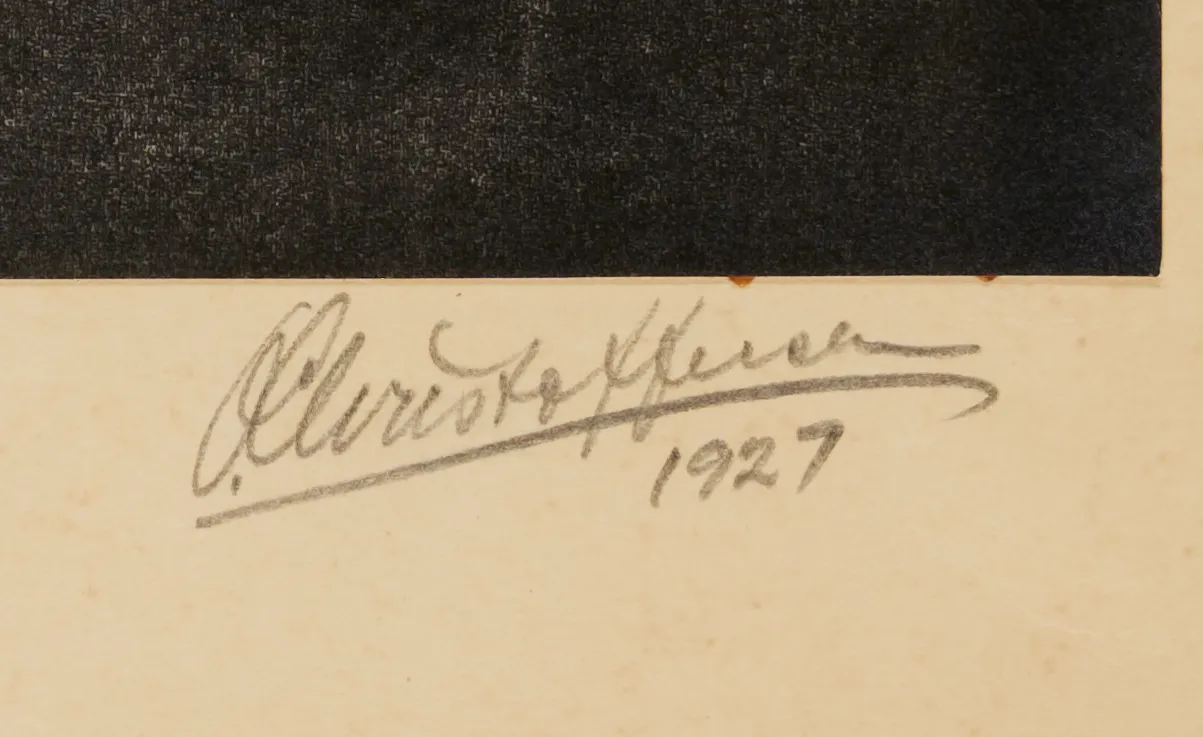 Christoffersen
1927